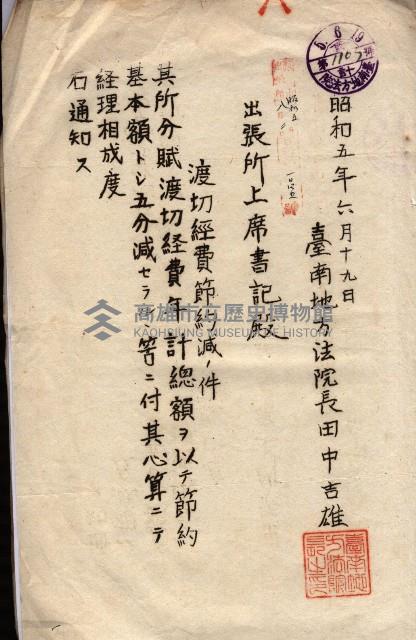 昭和五年六月十九日
臺南地方法院長田中吉雄
臺南地方法院長之印
出張所上席書記殿
渡切經費節約減ノ件
其所分賦渡切経費年計總額ヲ以テ節約
基本額トシ五分減セラ筈ニ付其心算ニテ
経理相成度
右通知ス
5.6.19
高雄市立歷史博物館
KAOHSIUNG MUSEUM OF HISTORY